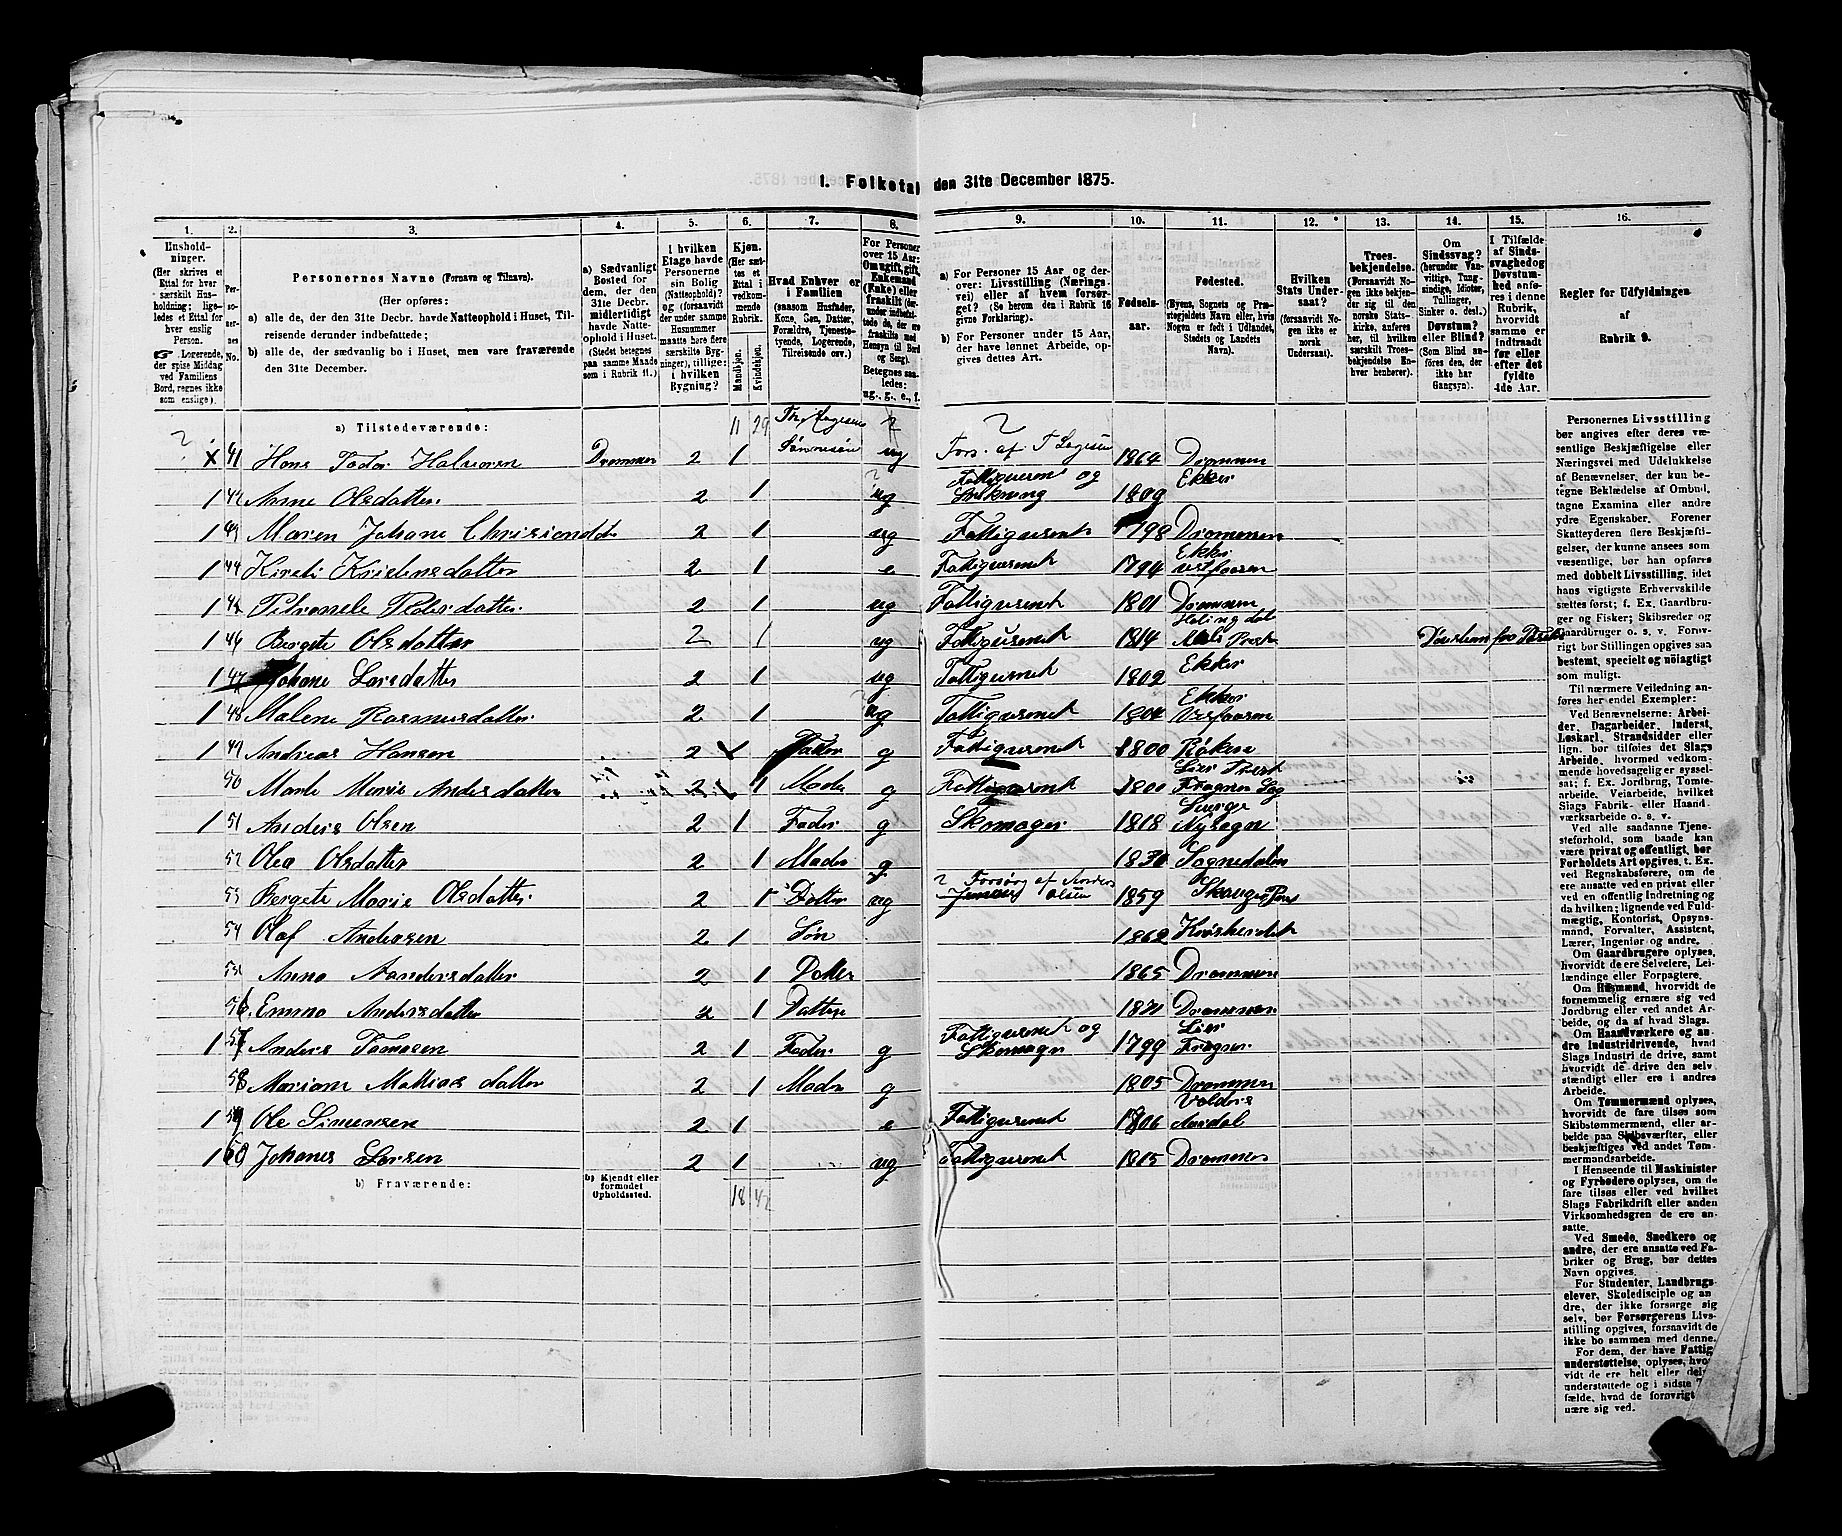 1. Folketal den 31te December 1875.
1. 2. 3. 4. 5. 6. 7. 8. 9. 10. 11. 12. 13. 14. 15. 16.
Hushold-
ninger.
(Her skrives et
Ettal for hver
særskilt Hus-
holdning; lige-
ledes et Ettal for
hver enslig
Person.
☞ Logerende,
der spise Middag
ved Familiens
Bord, regnes ikke
som enslige).
Per-
so-
ner-
nes
No.
Personernes Navne (Fornavn og Tilnavn).
(Her opføres:
a) alle de, der den 31te Decbr. havde Natteophold i Huset, Til-
reisende derunder indbefattede;
b) alle de, der sædvanlig bo i Huset, men vare fraværende
den 31te December.
a) Sædvanligt
Bosted for
dem, der den
31te Decbr.
midlertidigt
havde Natte-
ophold i Huset.
(Stedet betegnes
paa samme Maade
som i Rubrik 11.)
I hvilken
Etage havde
Personerne
sin Bolig
(Natteophold)?
og (forsaavidt
der under samme
Husnummer
maatte høre flere
særskilte Byg-
ninger), tillige:
i hvilken
Bygning?
Kjøn.
(Her sæt-
tes et
Ettal i
vedkom-
mende
Rubrik.
Mandkjøn.
Kvindekjøn.
Hvad Enhver er
i Familien
(saasom Husfader,
Kone, Søn, Datter,
Forældre, Tjeneste-
tyende, Logerende,
Tilreisende osv.)
For Personer
over 15 Aar:
Om ugift, gift,
Enkemand
(Enke) eller
fraskilt (der-
under indbefat-
tede de, der ere
fraskilte med
Hensyn til Bord
og Seng).
Betegnes saa-
ledes:
ug., g., e., f.
a) For Personer 15 Aar og der-
over: Livsstilling (Nærings-
vei) eller af hvem forsør-
get? (Se herom den i Rubrik 16
givne Forklaring).
b) For Personer under 15 Aar,
der have lønnet Arbeide, op-
gives dettes Art.
Fødsels-
aar.
Fødested.
(Byens, Sognets og Præ-
stegjeldets Navn eller, hvis
Nogen er født i Udlandet,
Stedets og Landets
Navn).
Hvilken
Stats Under-
saat?
(forsaavidt No-
gen ikke er
norsk
Undersaat).
Troes-
bekjendelse.
(Forsaavidt No-
gen ikke bekjen-
der sig til den
norske Stats-
kirke, anføres
her, til hvilken
særskilt Troes-
bekjendelse En-
hver henhører).
Om
Sindssvag?
(herunder Van-
vittige, Tung-
sindige, Idioter,
Tullinger,
Sinker o. desl.)
Døvstum?
eller Blind?
(Som Blind an-
føres den, der
ikke har
Gangsyn).
I Tilfælde
af Sinds-
svaghed og
Døvstum-
hed anfø-
res i denne
Rubrik,
hvorvidt
samme er
indtraadt
før eller
efter det
fyldte
4de Aar.
Regler for Udfyldningen
af
Rubrik 9.
a) Tilstedeværende: 11 29
? X 41 Hans Teodor Halvorsen Drammen 2 1 Sønnesøn ug Fors. af T Aagesen 1864 Drammen
1 42 Anne Olsdatter 2 1 ug Fattigvesenet og Strikning 1809 Eker
1 43 Maren Johane Chrisiandt 2 1 ug Fattigvesenet 1798 Drammen
1 44 Kirsti Kristensdatter 2 1 e Fattigvesenet 1794 Eker Vestfossen
1 45 Petronele Pedersdatter 2 1 ug Fattigvesenet 1801 Drammen
1 46 Bergete Olsdatter 2 1 ug Fattigvesenet 1814 Halingdal Døvstum fra
1 47 Johane Larsdatter 2 1 ug Fattigvesenet 1802 Eker
1 48 Malene Rasmusdatter 2 1 ug Fattigvesenet 1804 Eker Vesfossen
1 49 Andreas Hansen 2 1 Fader g Fattigvesenet 1800 Røken
50 Marte Marie Andersdatter 2 1 Moder g Fattigvesenet 1800 Lier Præst Frogner Sog
1 51 Anders Olsen 2 1 Fader g Skomager 1818 Sverge
52 Olea Olsdatter 2 1 Moder g 1830 Sognedalen
53 Bergete Marie Olsdatter 2 1 Datter ug ? Forsørg af Anders Olsen 1859 Skauger Præs
54 Olaf Andersen 2 1 Søn 1862
55 Anna Aandersdatter 2 1 Datter 1865 Drammen
56 Emma Andersdatter 2 1 Datter 1871 Drammen
1 57 Anders Tomasen 2 1 Fader g Fattigvesenet og Skomager 1799 Lier Frogner
58 Mariane Mathias datter 2 1 Moder g 1805 Drammen
1 59 Ole Simensen 2 1 e Fattigvesenet 1806 Valders Aardal
1 60 Johanes Larsen 2 1 ug Fattigvesenet 1815 Drammen
b) Fraværende:
b) Kjendt eller
formodet
Opholdssted.
18 42
Personernes Livsstilling
bør angives efter deres væ-
sentlige Beskjæftigelse eller
Næringsvei med Udelukkelse
af Benævnelser, der kun be-
tegne Beklædelse af Ombud,
tagne Examina eller andre
ydre Egenskaber. Forener
Skatteyderen flere Beskjæfti-
gelser, der kunne ansees som
væsentlige, bør han opføres
med dobbelt Livsstilling, idet
hans vigtigste Erhvervskilde
sættes først; f. Ex. Gaardbru-
ger og Fisker; Skibsreder og
Gaardbruger o. s. v. Forøv-
rigt bør Stillingen opgives saa
bestemt, specielt og nøiagtigt
som muligt.
Til nærmere Veiledning an-
føres her endel Exempler:
Ved Benævnelserne: Arbei-
der, Dagarbeider, Inderst,
Løskarl, Strandsidder eller
lign. bør tilføies det Slags
Arbeide, hvormed vedkom-
mende hovedsagelig er syssel-
sat; f. Ex. Jordbrug, Tomte-
arbeide, Veiarbeide, hvilket
Slags Fabrik- eller Haand-
værksarbeide o. s. v.
Ved alle saadanne Tjene-
steforhold, som baade kan
være private og offentligt, bør
Forholdets Art opgives, t. Ex.
ved Regnskabsførere, om de
ere ansatte ved en privat eller
ved en offentlig Indretning og
da hvilken; lignende ved Fuld-
mægtig, Kontorist, Opsyns-
mand, Forvalter, Assistent,
Lærer, Ingeniør og andre.
Om Gaardbrugere oplyses,
hvorvidt de ere Selveiere, Lei-
lændinge eller Forpagtere.
Om Husmænd, hvorvidt de
fornemmelig ernære sig ved
Jordbrug eller ved andet Ar-
beide, og da af hvad Slags.
Om Haandværkere og an-
dre Industridrivende, hvad
Slags Industri de drive, samt
hvorvidt de drive den selv-
stændigt eller ere i andres
Arbeide.
Om Tømmermænd oplyses,
hvorvidt de fare tilsøs som
Skibstømmermænd, eller ar-
beide paa Skibsværfter, eller
beskjæftiges ved andet Tøm-
mermandsarbeide.
I Henseende til Maskinister
og Fyrbødere oplyses, om de
fare tilsøs eller ved hvilket
Slags Fabrikdrift eller anden
Virksomhedsgren de ere an-
satte.
Ved Smede, Snedkere og
andre, der ere ansatte ved Fa-
briker og Brug, bør dettes
Navn opgives.
For Studenter, Landbrugs-
elever, Skoledisciple og an-
dre, der ikke forsørge sig
selv, bør Forsørgerens Livs-
stilling opgives, forsaavidt de
ikke bo sammen med denne.
For dem, der have Fattig-
understøttelse, oplyses, hvor-
vidt de ere helt eller delvis
understøttede og i sidste Til-
fælde, hvad de forøvrigt er-
nære sig ved.